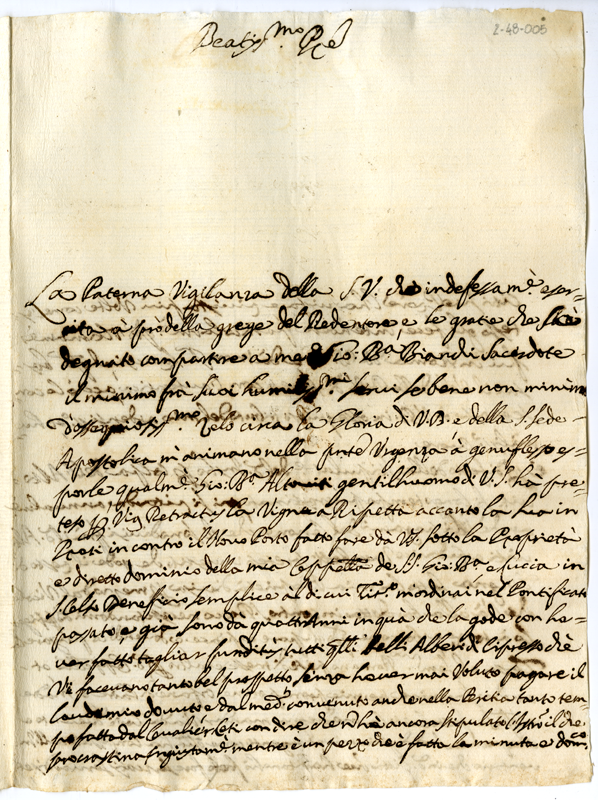 2-48-005
Beatiss.mo P.re
La Paterna Vigilanza della S. V. che indefessam.e eser-
cita à prò della grege del Redentore, e le gratie che si è
degnato compartire a me Gio: B.a Biandi Sacerdote
il minimo frà suoi humiliss.mi servi se bene non minim
d'ossequiosiss.mo zelo circa la Gloria di V. B. e della S. Sede
Apostolica m'animano nella pnte Urgenza á genuflesso es-
porle qualm.e Gio: B.a gentilhuomo di V. S. hà pre-
teso Via Retractus la Vigna a Ripetta accanto la sua in
Prati incontro il Novo Porto fatto fare da sotto la Proprietà
e diretto dominio della mia Cappella de SS. Gio: B.a in
S. Celso Beneficio semplice à di cui Tit.o m'ordinai nel Pontificato
passato e già sono da quattr'anni in quà che la gode con ha-
ver fatto tagliar funditus tutti gli belli Alberi di Cipresso che
Vi facevano tanto bel prospetto senza haver mai Voluto pagare il
laudemio dovuto e dal med.o convenuto anche nella Peritia tanto tem-
po fatta dal Cavalier con dire che hà ancora stipulato che
procrastina ingiustam.e mentre è un pezzo che è fatta la minuta e